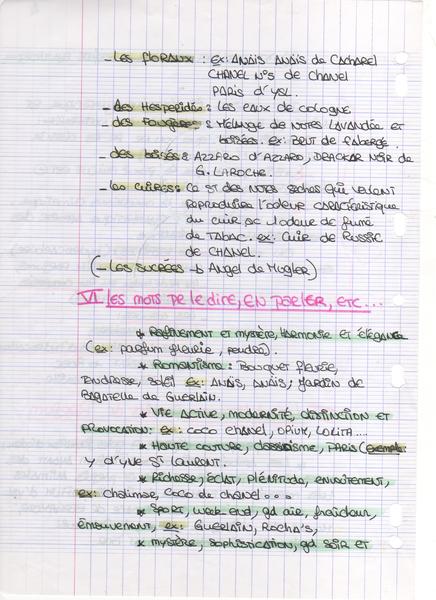 - Les floraux : ex: Anaïs Anaïs de Cacharel
CHANEL N°5 de chanel
PARIS d'YSL.
- des Hesperidés : Les eaux de cologne
- des Fougères : Mélange de notes lavandée et
boisées. ex: Brut de faberge.
- des boisés : AZZARO d'AZZARO, DRACKAR NOIR de
G. LAROCHE.
- les cuirés : Ca st des notes seches qui veulent
reproduire l'odeur caractéristique
du cuir et l'odeur de fumé
de Tabac. ex: Cuir de Russie
de CHANEL.
(- Les Sucrées -> Angel de Mugler)
VI Les mots pr le dire, en parler, etc...
* Raffinement et mystère, harmonie et élégance
(ex: parfum fleurie, poudré).
* Romantisme : Bouquet fleurie,
tendresse, soleil ex: Anaïs, Anaïs; Jardin de
Bagatelle de Guerlain.
* Vie active, modernité, distinction et
provocation: ex: coco chanel, opium, Lolita...
* Haute couture, classisisme, Paris (exemple:
Y d'yve St Laurent.
* Richesse, éclat, plénitude, envoutement,
ex: chalimar, coco de chanel...
* Sport, week-end, gd air, fraicheur,
Emouvement, ex: Guerlain, Rocha's,
* mystère, sophistication, gd soir et